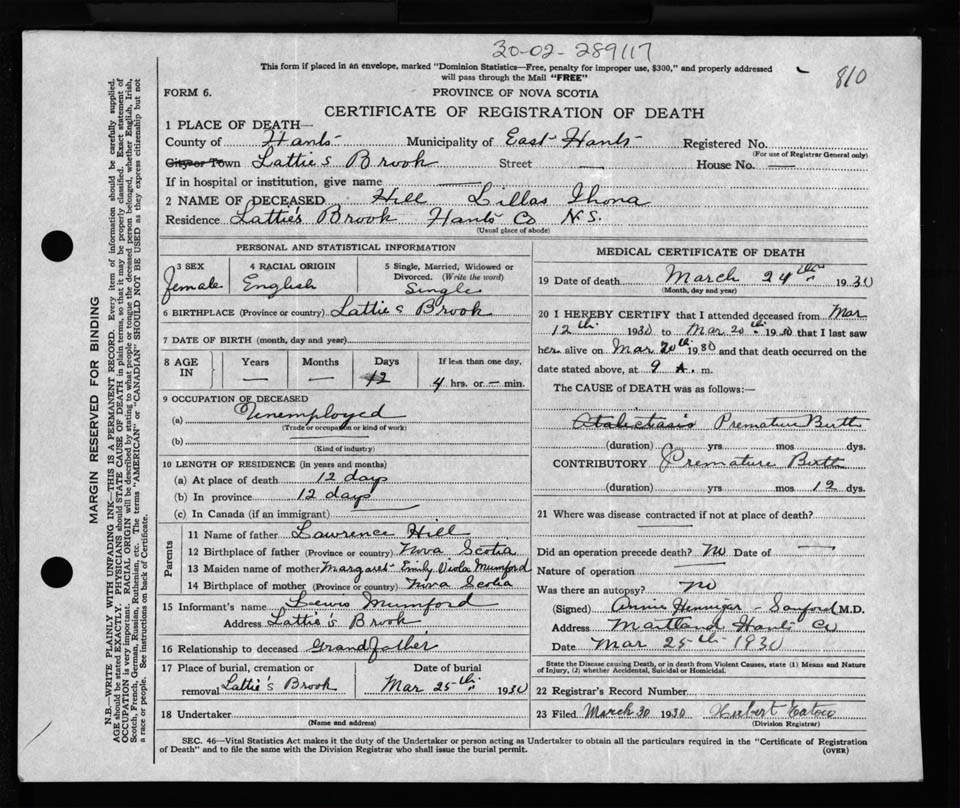 30-02-289117
810
This form if placed in an envelope, marked "Dominion Statistics—Free, penalty for improper use, $300," and properly addressed
will pass through the Mail "FREE"
FORM 6.
PROVINCE OF NOVA SCOTIA
CERTIFICATE OF REGISTRATION OF DEATH
1 PLACE OF DEATH—
County of Hants Municipality of East Hants Registered No.
(For use of Registrar General only)
City or Town Lattie's Brook Street — House No. —
If in hospital or institution, give name —
2 NAME OF DECEASED Hill Lillas Ihona
Residence Lattie's Brook Hants Co N.S.
(Usual place of abode)
PERSONAL AND STATISTICAL INFORMATION
3 SEX Female
4 RACIAL ORIGIN English
5 Single, Married, Widowed or Divorced. (Write the word) Single
6 BIRTHPLACE (Province or country) Lattie's Brook
7 DATE OF BIRTH (month, day and year)
8 AGE IN Years — Months — Days 12 If less than one day, 4 hrs. or — min.
9 OCCUPATION OF DECEASED
(a) Unemployed
(Trade or occupation or kind of work)
(b) —
(Kind of industry)
10 LENGTH OF RESIDENCE (in years and months)
(a) At place of death 12 days
(b) In province 12 days
(c) In Canada (if an immigrant)
Parents
11 Name of father Lawrence Hill
12 Birthplace of father (Province or country) Nova Scotia
13 Maiden name of mother Margaret Emily Viola Mumford
14 Birthplace of mother (Province or country) Nova Scotia
15 Informant's name Lewis Mumford
Address Lattie's Brook
16 Relationship to deceased Grandfather
17 Place of burial, cremation or removal Lattie's Brook
Date of burial Mar 25th 1930
18 Undertaker
(Name and address)
MEDICAL CERTIFICATE OF DEATH
19 Date of death March 24th 1930
(Month, day and year)
20 I HEREBY CERTIFY that I attended deceased from Mar
12th 1930 to Mar 20th 1930 that I last saw
her alive on Mar 20th 1930 and that death occurred on the
date stated above, at 9 A. m.
The CAUSE of DEATH was as follows:—
Atalictasis Premature Birth
(duration) yrs mos dys.
CONTRIBUTORY Premature Birth
(duration) yrs mos 12 dys.
21 Where was disease contracted if not at place of death?
—
Did an operation precede death? No Date of —
Nature of operation
Was there an autopsy? No
(Signed) Annie Hennigar - Sanford M.D.
Address Maitland Hants Co
Date Mar 25th 1930
State the Disease causing Death, or in death from Violent Causes, state (1) Means and Nature
of Injury, (2) whether Accidental, Suicidal or Homicidal.
22 Registrar's Record Number
23 Filed March 30 1930 Herbert
(Division Registrar)
SEC. 46—Vital Statistics Act makes it the duty of the Undertaker or person acting as Undertaker to obtain all the particulars required in the "Certificate of Registration
of Death" and to file the same with the Division Registrar who shall issue the burial permit.
(OVER)
MARGIN RESERVED FOR BINDING
N.B.—WRITE PLAINLY WITH UNFADING INK—THIS IS A PERMANENT RECORD. Every item of information should be carefully supplied.
AGE should be stated EXACTLY. PHYSICIANS should STATE CAUSE OF DEATH in plain terms, so that it may be properly classified. Exact statement of
OCCUPATION is very important. RACIAL ORIGIN will be described by stating to what people or tongue the deceased person belonged, whether English, Irish,
Scotch, French, German, Russian, Ruthenian, etc. The terms "AMERICAN" or "CANADIAN" SHOULD NOT BE USED as they express citizenship but not
a race or people. See instructions on back of Certificate.